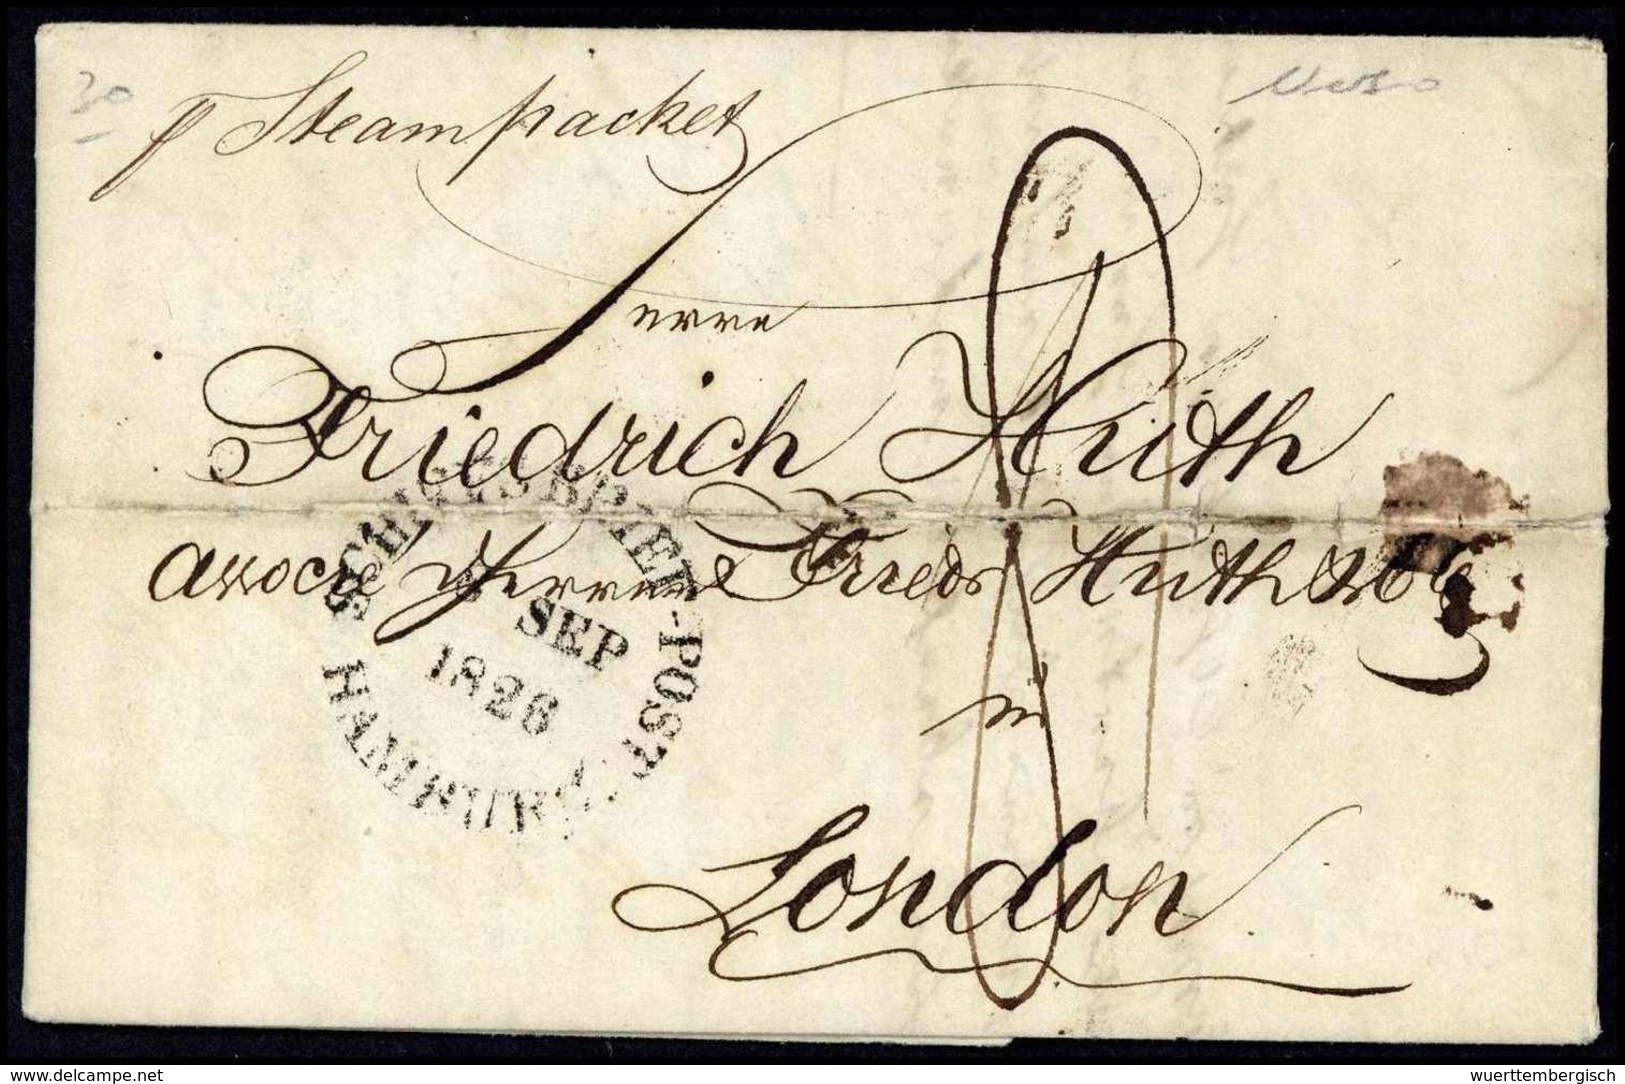 30
p Steampacket
Herrn
Friedrich Huth
Herren Frieds Huth & Co
in
London
SCHIFFSBRIEF-POST
SEP
1826
HAMBURG
www.delcampe.net
wuerttembergisch